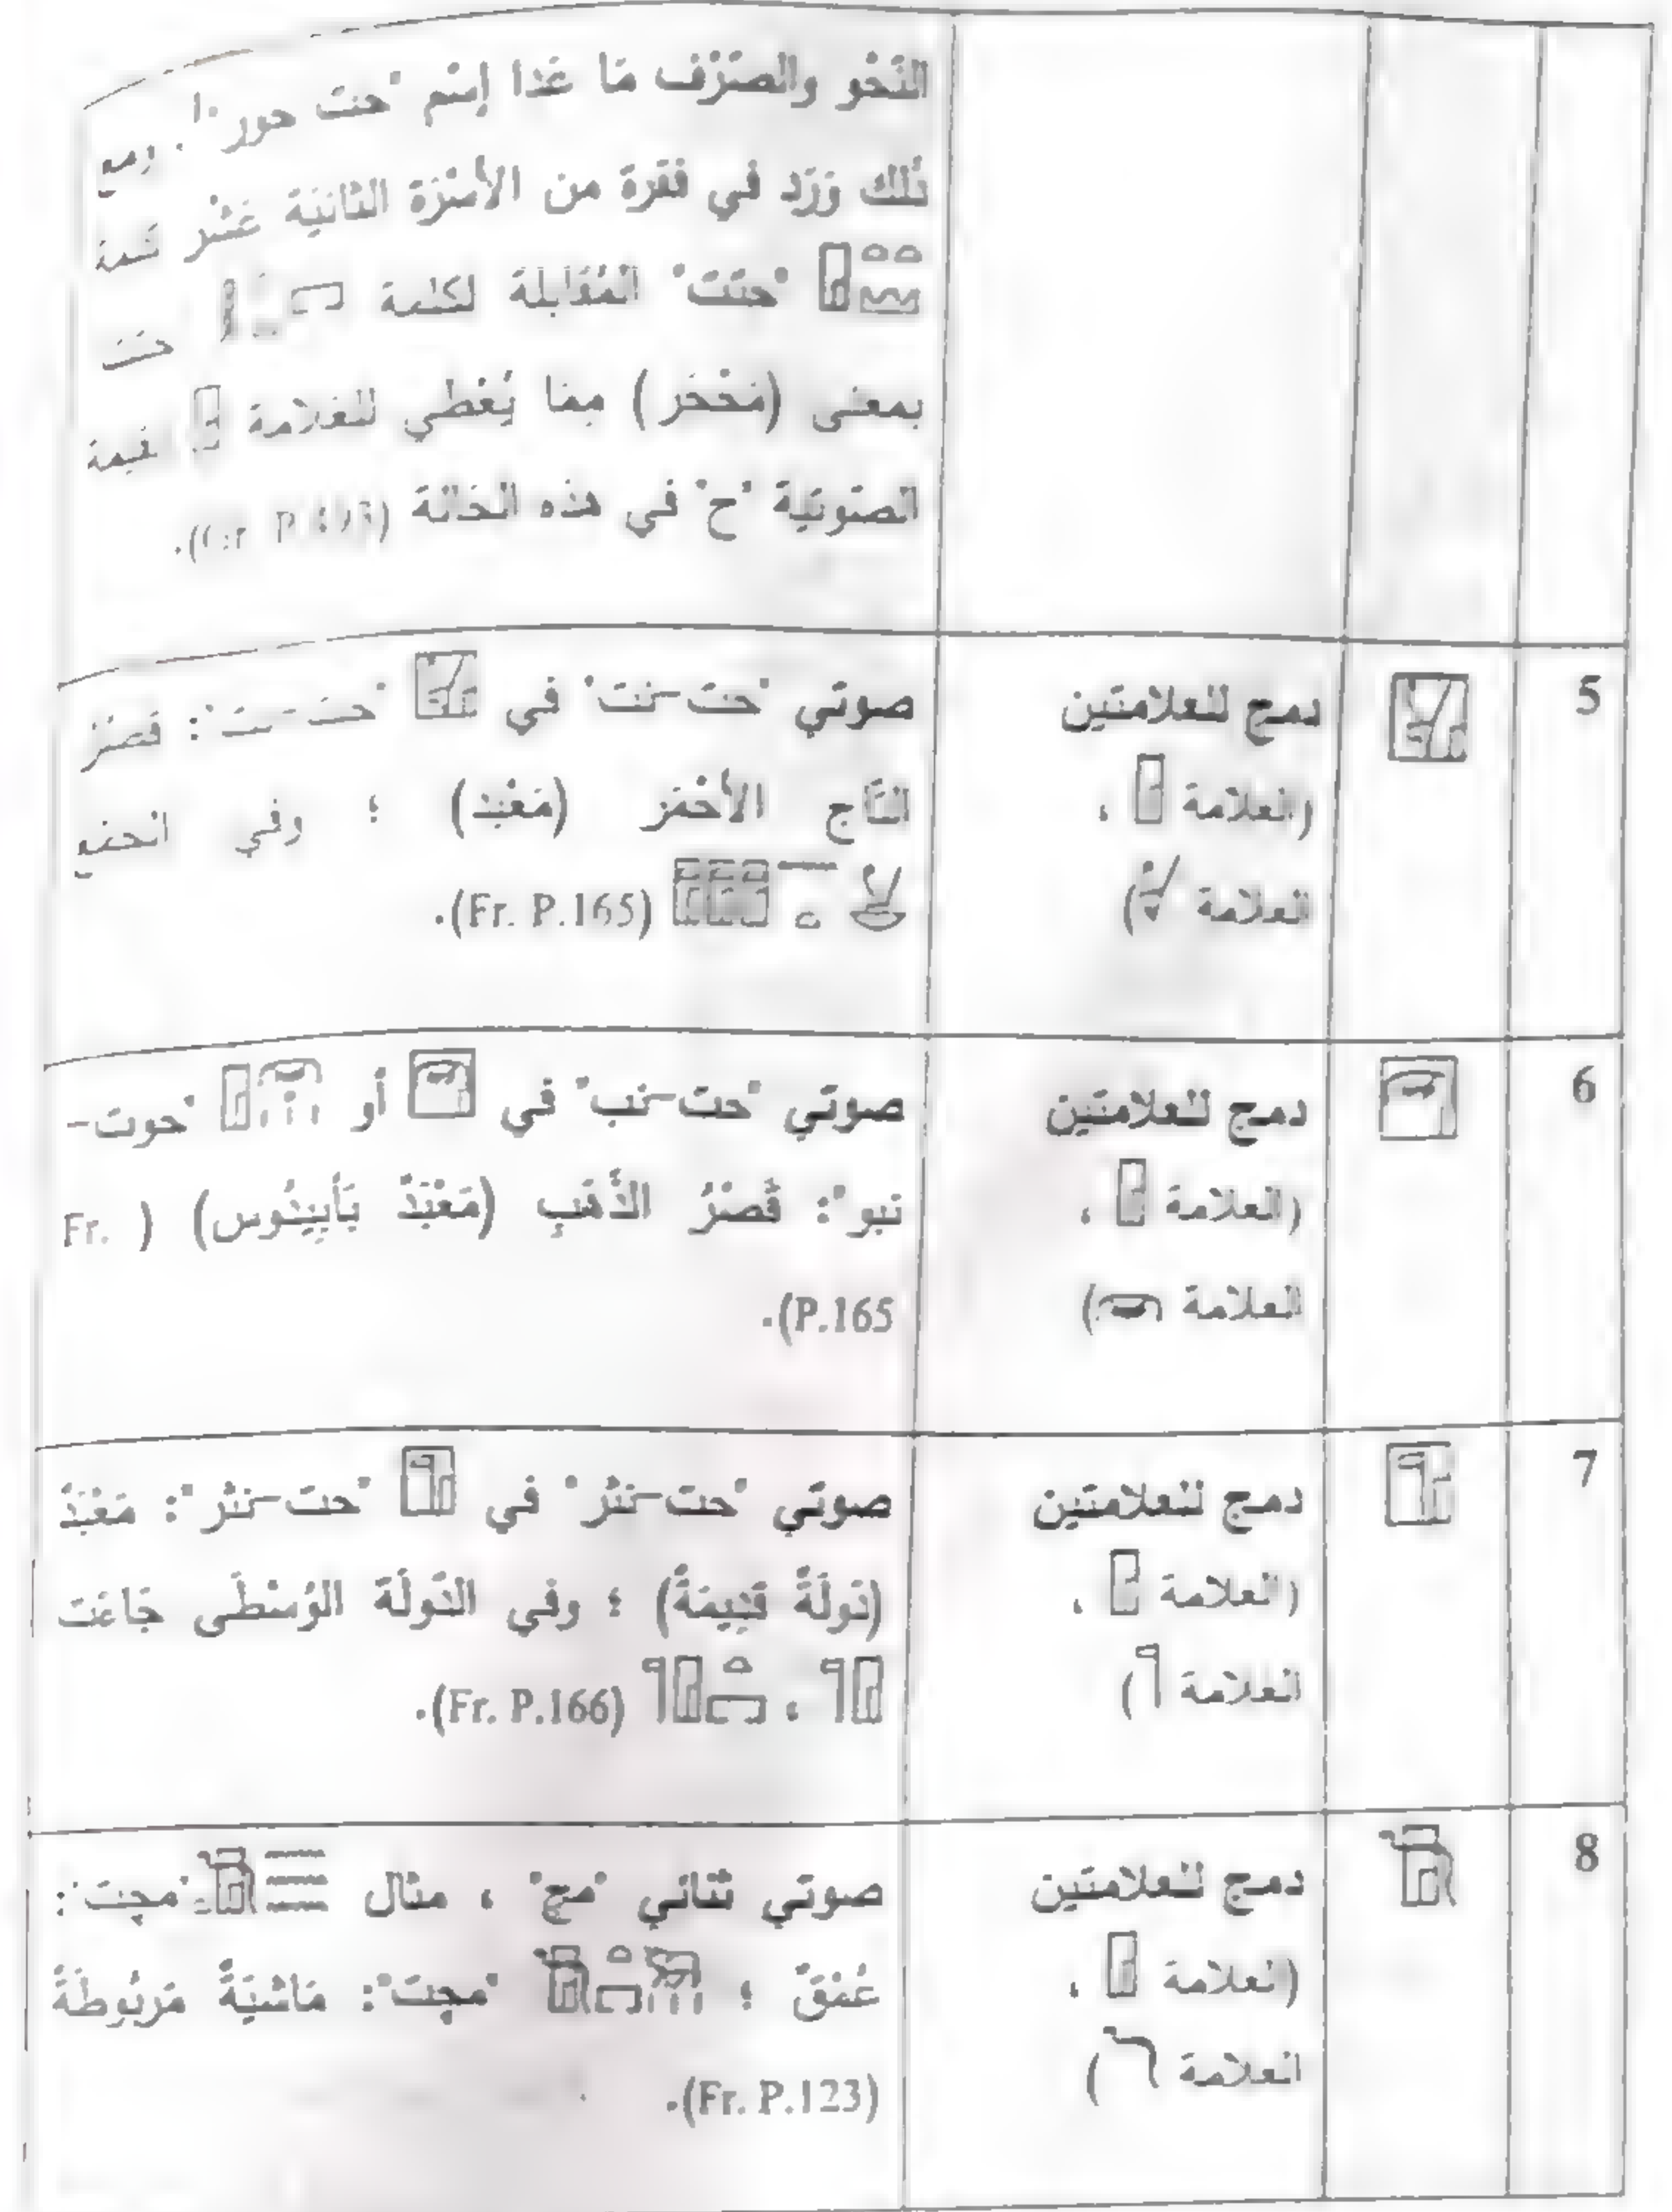 النَحْو والصَرْف مَا عَدَا إسْم "حت حور". ومع
ذلك وَرَد في فقرة من الأسْرَة الثانيَة عَشْر
"حتت" المُقَابلة لكلمة حتت
بمعنى (مَحْجَر) مِمَا يُعْطي للعَلامة القيمة
الصَوتيَة "ح" في هذه الحَالة
5
دمج للعلامتين
(العلامة ،
العلامة )
صوتي "حت-نت" في "حت-نت": قَصْرُ
التَاج الأحْمَر (مَعْبَد) ؛ وفي الجمع
(Fr. P.165).
6
دمج للعلامتين
(العلامة ،
العلامة )
صوتي "حت-نب" في أو "حوت-
نبو": قَصْرُ الذَهَبِ (مَعْبَدٌ بَأبيدُوس) ( Fr.
P.165).
7
دمج للعلامتين
(العلامة ،
العلامة )
صوتي "حت-نثر" في "حت-نثر": مَعْبَدٌ
(دَولَةٌ قَدِيمَةٌ) ؛ وفي الدَولَة الوُسْطَى جَاءَت
، (Fr. P.166).
8
دمج للعلامتين
(العلامة ،
العلامة )
صوتي ثنائي "مچ" ، مثال "مچت":
عُمْقٌ ؛ "مچت": مَاشيَةٌ مَربُوطَةٌ
(Fr. P.123).